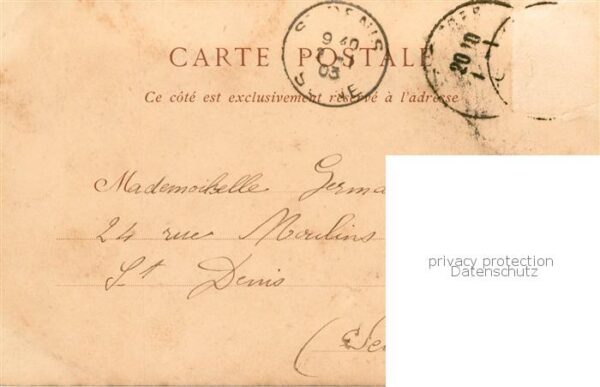 CARTE POSTALE
Ce côté est exclusivement réservé à l'adresse
ST DENIS
9 40
03
SEINE
20 10
Mademoiselle Germa
24 rue Moulins
St Denis
(Sei
privacy protection
Datenschutz